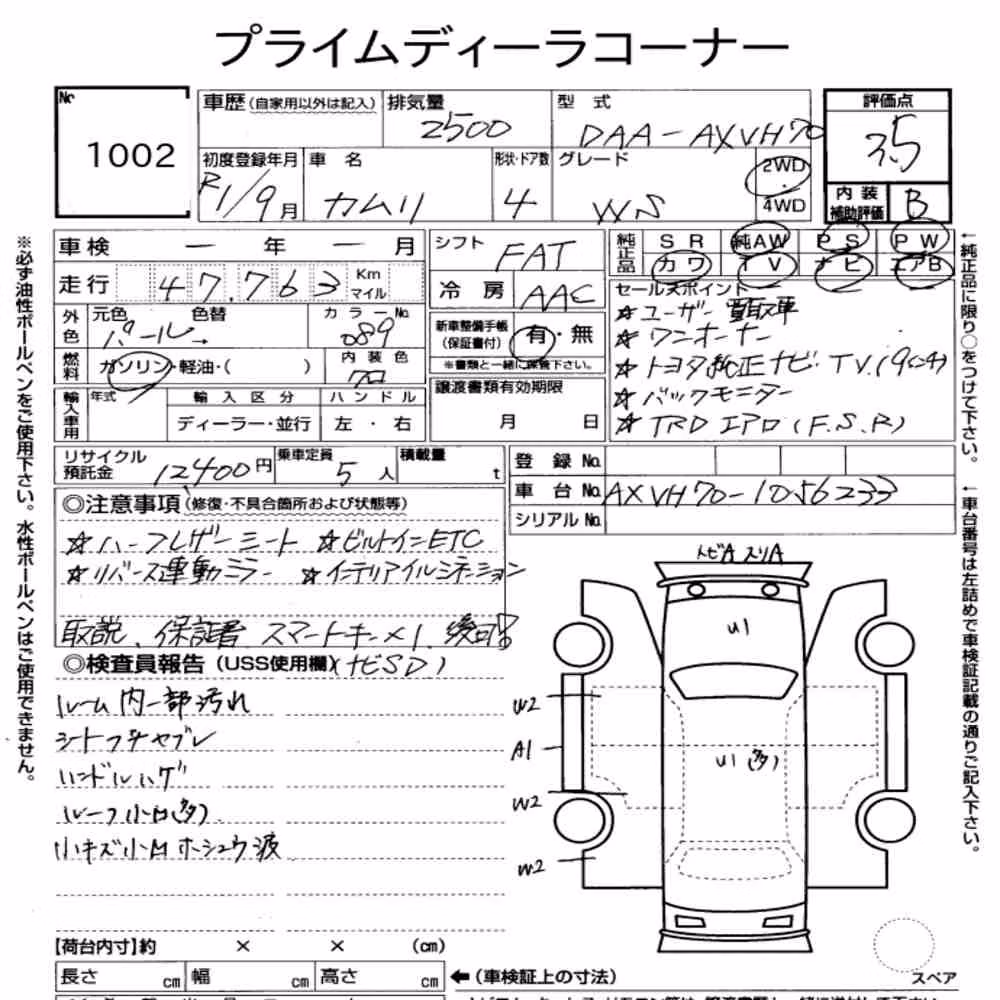 プライムディーラーコーナー
No. 1002
車歴(自家用以外は記入) 排気量 2500 型式 DAA-AXVH70
評価点 3.5
初度登録年月 R1/9月 車名 カムリ 形状・ドア数 4 グレード WS 2WD・4WD
内装補助評価 B
車検 ー年ー月
走行 47,763 Km マイル
シフト FAT
冷房 AAC
純正品 SR 純AW PS PW
カワ TV ナビ エアB
外色 元色 パール 色替 → カラーNo. 089
燃料 ガソリン・軽油・( ) 内装色 クロ
新車整備手帳(保証書付) 有・無
※書類と一緒に保管下さい。
セールスポイント
☆ユーザー買取車
☆ワンオーナー
☆トヨタ純正ナビ・TV.(9インチ)
☆バックモニター
☆TRD エアロ(F.S.R)
輸入車用 年式 輸入区分 ハンドル
ディーラー・並行 左・右
譲渡書類有効期限
月 日
リサイクル預託金 12,400円 乗車定員 5人 積載量 t
登録No.
車台No. AXVH70-1056233
シリアルNo.
◎注意事項(修復・不具合箇所および状態等)
☆ハーフレザーシート ☆ビルトインETC
☆リバース連動ミラー ☆インテリアイルミネーション
取説、保証書 スマートキー×1 後日!
◎検査員報告(USS使用欄)(ナビSD)
ルーム内一部汚れ
シートコゲヤブレ
ハンドルハゲ
ルーフ小凹(多)
小キズ小凹ホシュウ波
トビA スリA
U1
W2
A1
U1(多)
W2
W2
【荷台内寸】約 × × (cm)
長さ cm 幅 cm 高さ cm ←(車検証上の寸法)
スペア
※必ず油性ボールペンをご使用下さい。水性ボールペンはご使用できません。
←純正品に限り○をつけて下さい。
←車台番号は左詰めで車検証記載の通りご記入下さい。